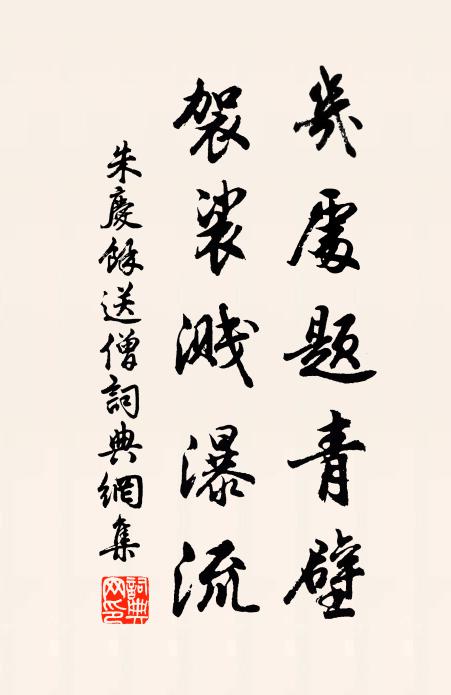 幾處題青壁
袈裟濺瀑流
朱慶餘送僧詞典網集
詞典網印